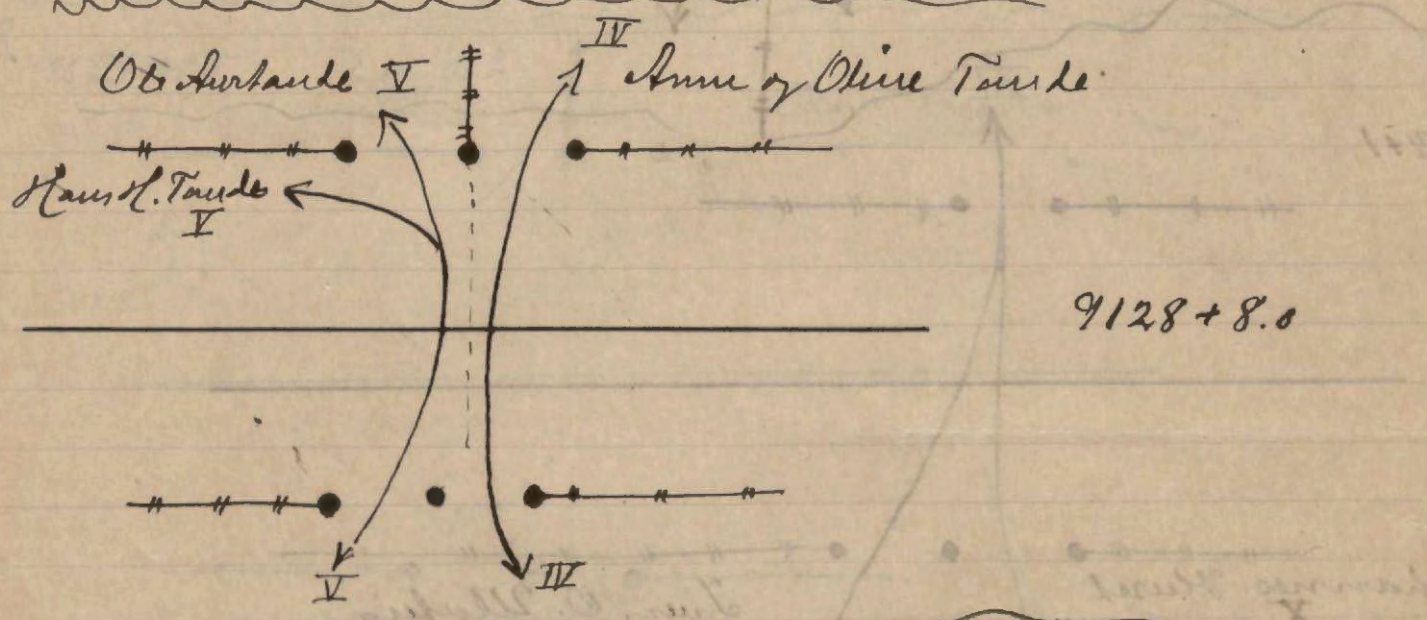 IV
Ole Aurlande V
Anne og Oline Tande
Hans H. Tande
V
9128 + 8.0
V
IV